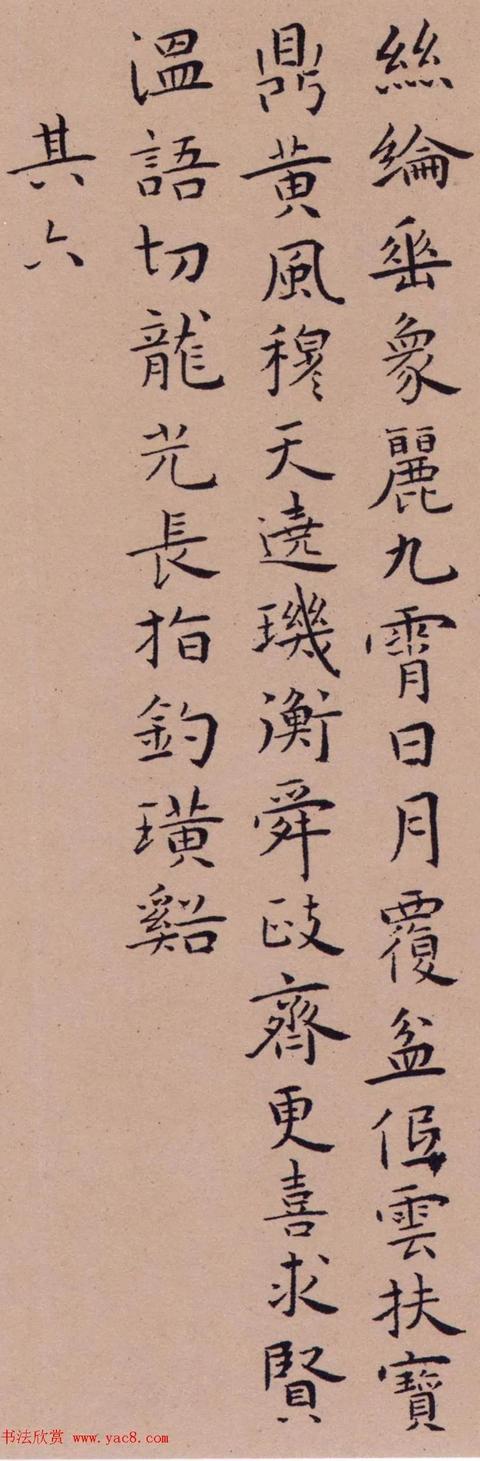 絲綸垂象麗九霄日月覆盆低雲扶寶
鼎黃風穆天遶璣衡舜政齊更喜求賢
溫語切龍光長指釣璜谿
其六
书法欣赏 www.yac8.com